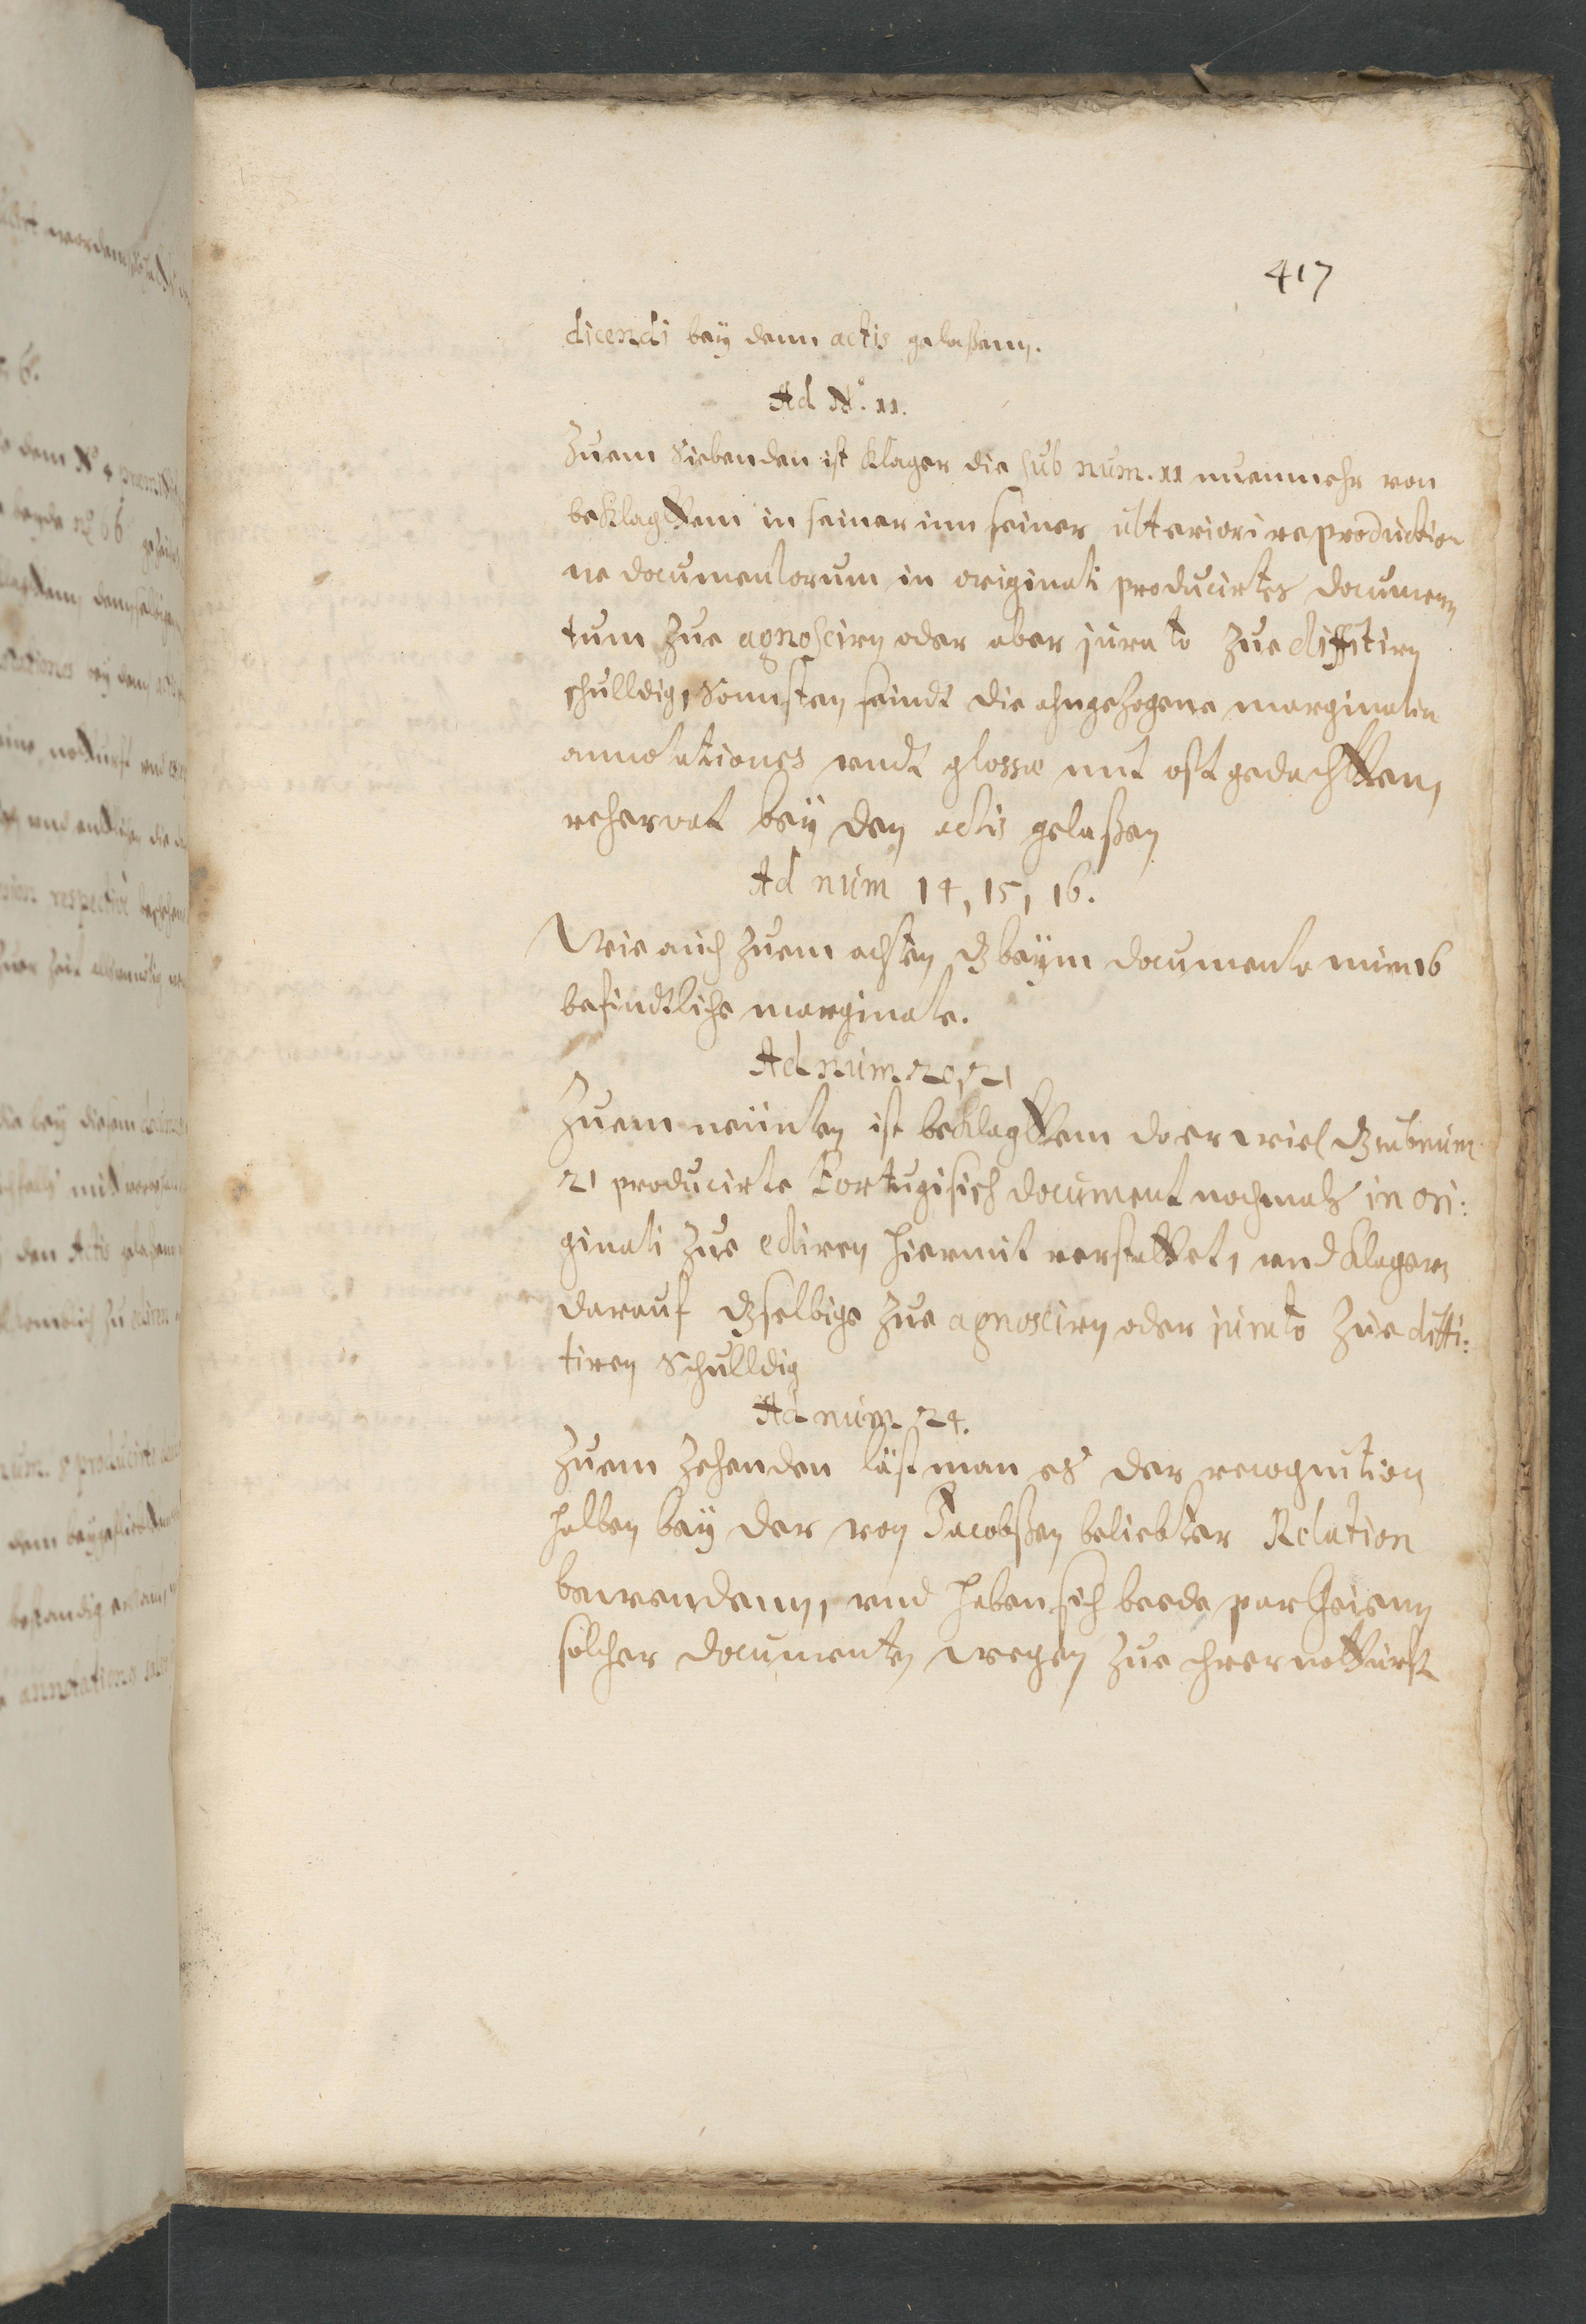 417
dicendi beÿ denn actis gelaßenn.
Ad N.º 11.
Zuem Siebenden ist Klager die sub num. 11 nuenmehr von
beklagttem in seiner inn seiner ulteriori reproduction
ne documentorum in originali producirtes documenn
tum zue agnoscirn oder aber jurato zue diffitirn
schulldig, Sonnsten seindt die ahngezogene marginalen
annotationes undt glossæ mit oftgedachtten,
reservat beÿ den actis gelaßen
Ad num 14, 15, 16.
Wie auch zuem achten dz beÿm documento num 16
befindtliche marginale.
Ad num 20, 21
Zuem neunten ist beklagttem do er wiel dz sub num
21 producirte Portugisisch document nochmals in ori:
ginali zue ediren hiermit verstattet, und Klagern
darauf dzselbige zue agnoscirn oder jurato zue diffi:
tiren Schulldig
Ad num 24.
Zuem Zehenden läst man es der recognition
halben beÿ der von Jacobßen beliebter Relation
bewendenn, und haben sich beede partheienn
solcher documenten wegen zue ihrer notturft